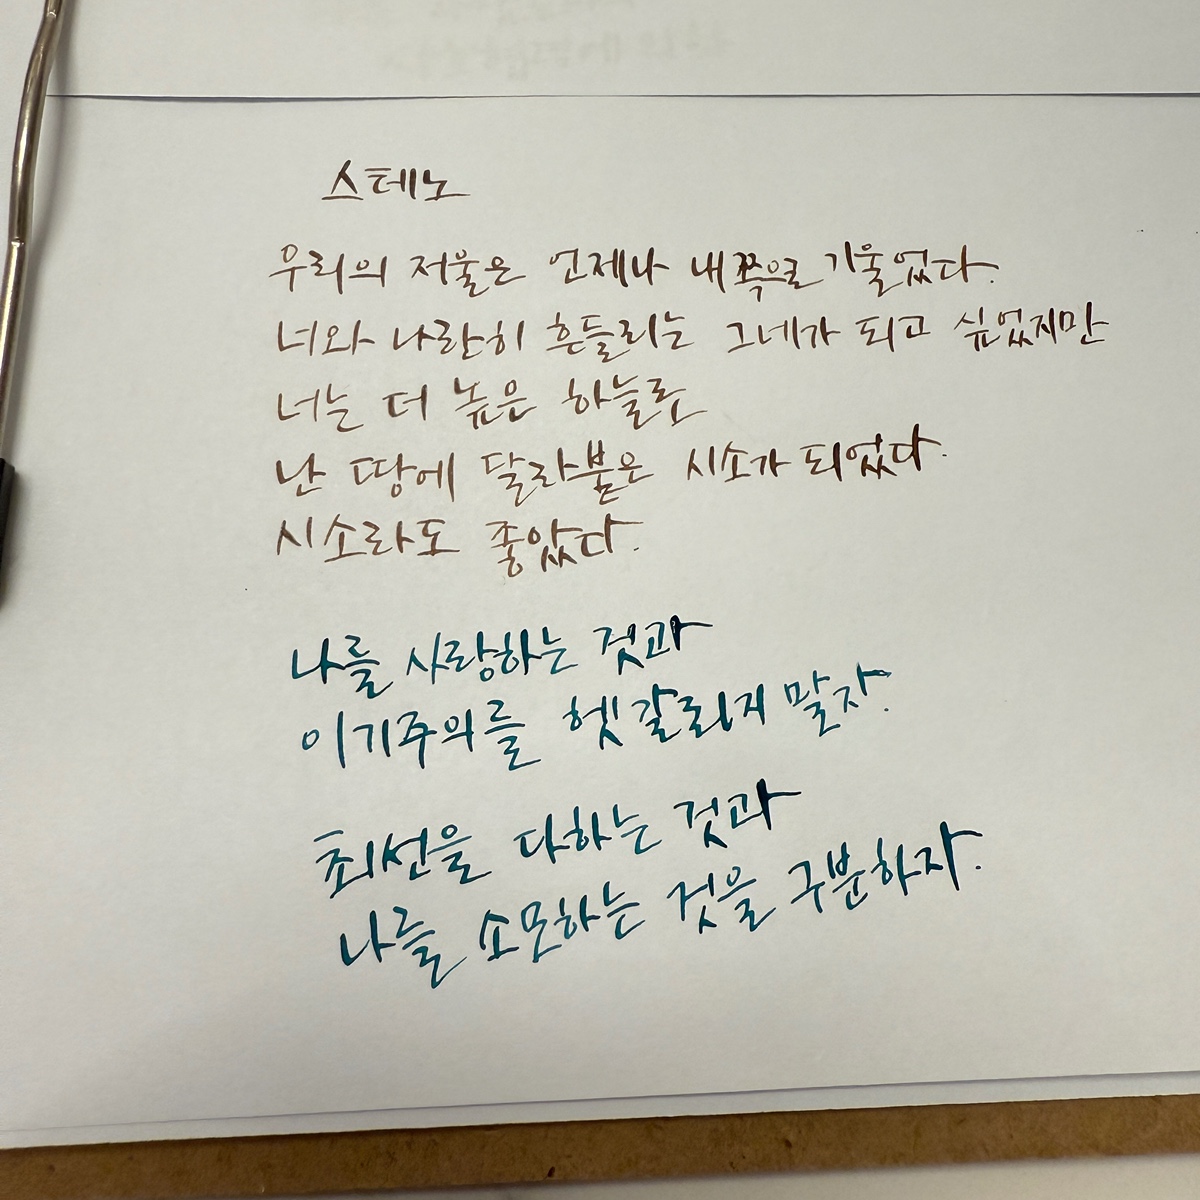 스테노
우리의 저울은 언제나 내쪽으로 기울었다.
너와 나란히 흔들리는 그네가 되고 싶었지만
너는 더 높은 하늘로
난 땅에 달라붙은 시소가 되었다.
시소라도 좋았다.
나를 사랑하는 것과
이기주의를 헷갈리지 말자.
최선을 다하는 것과
나를 소모하는 것을 구분하자.